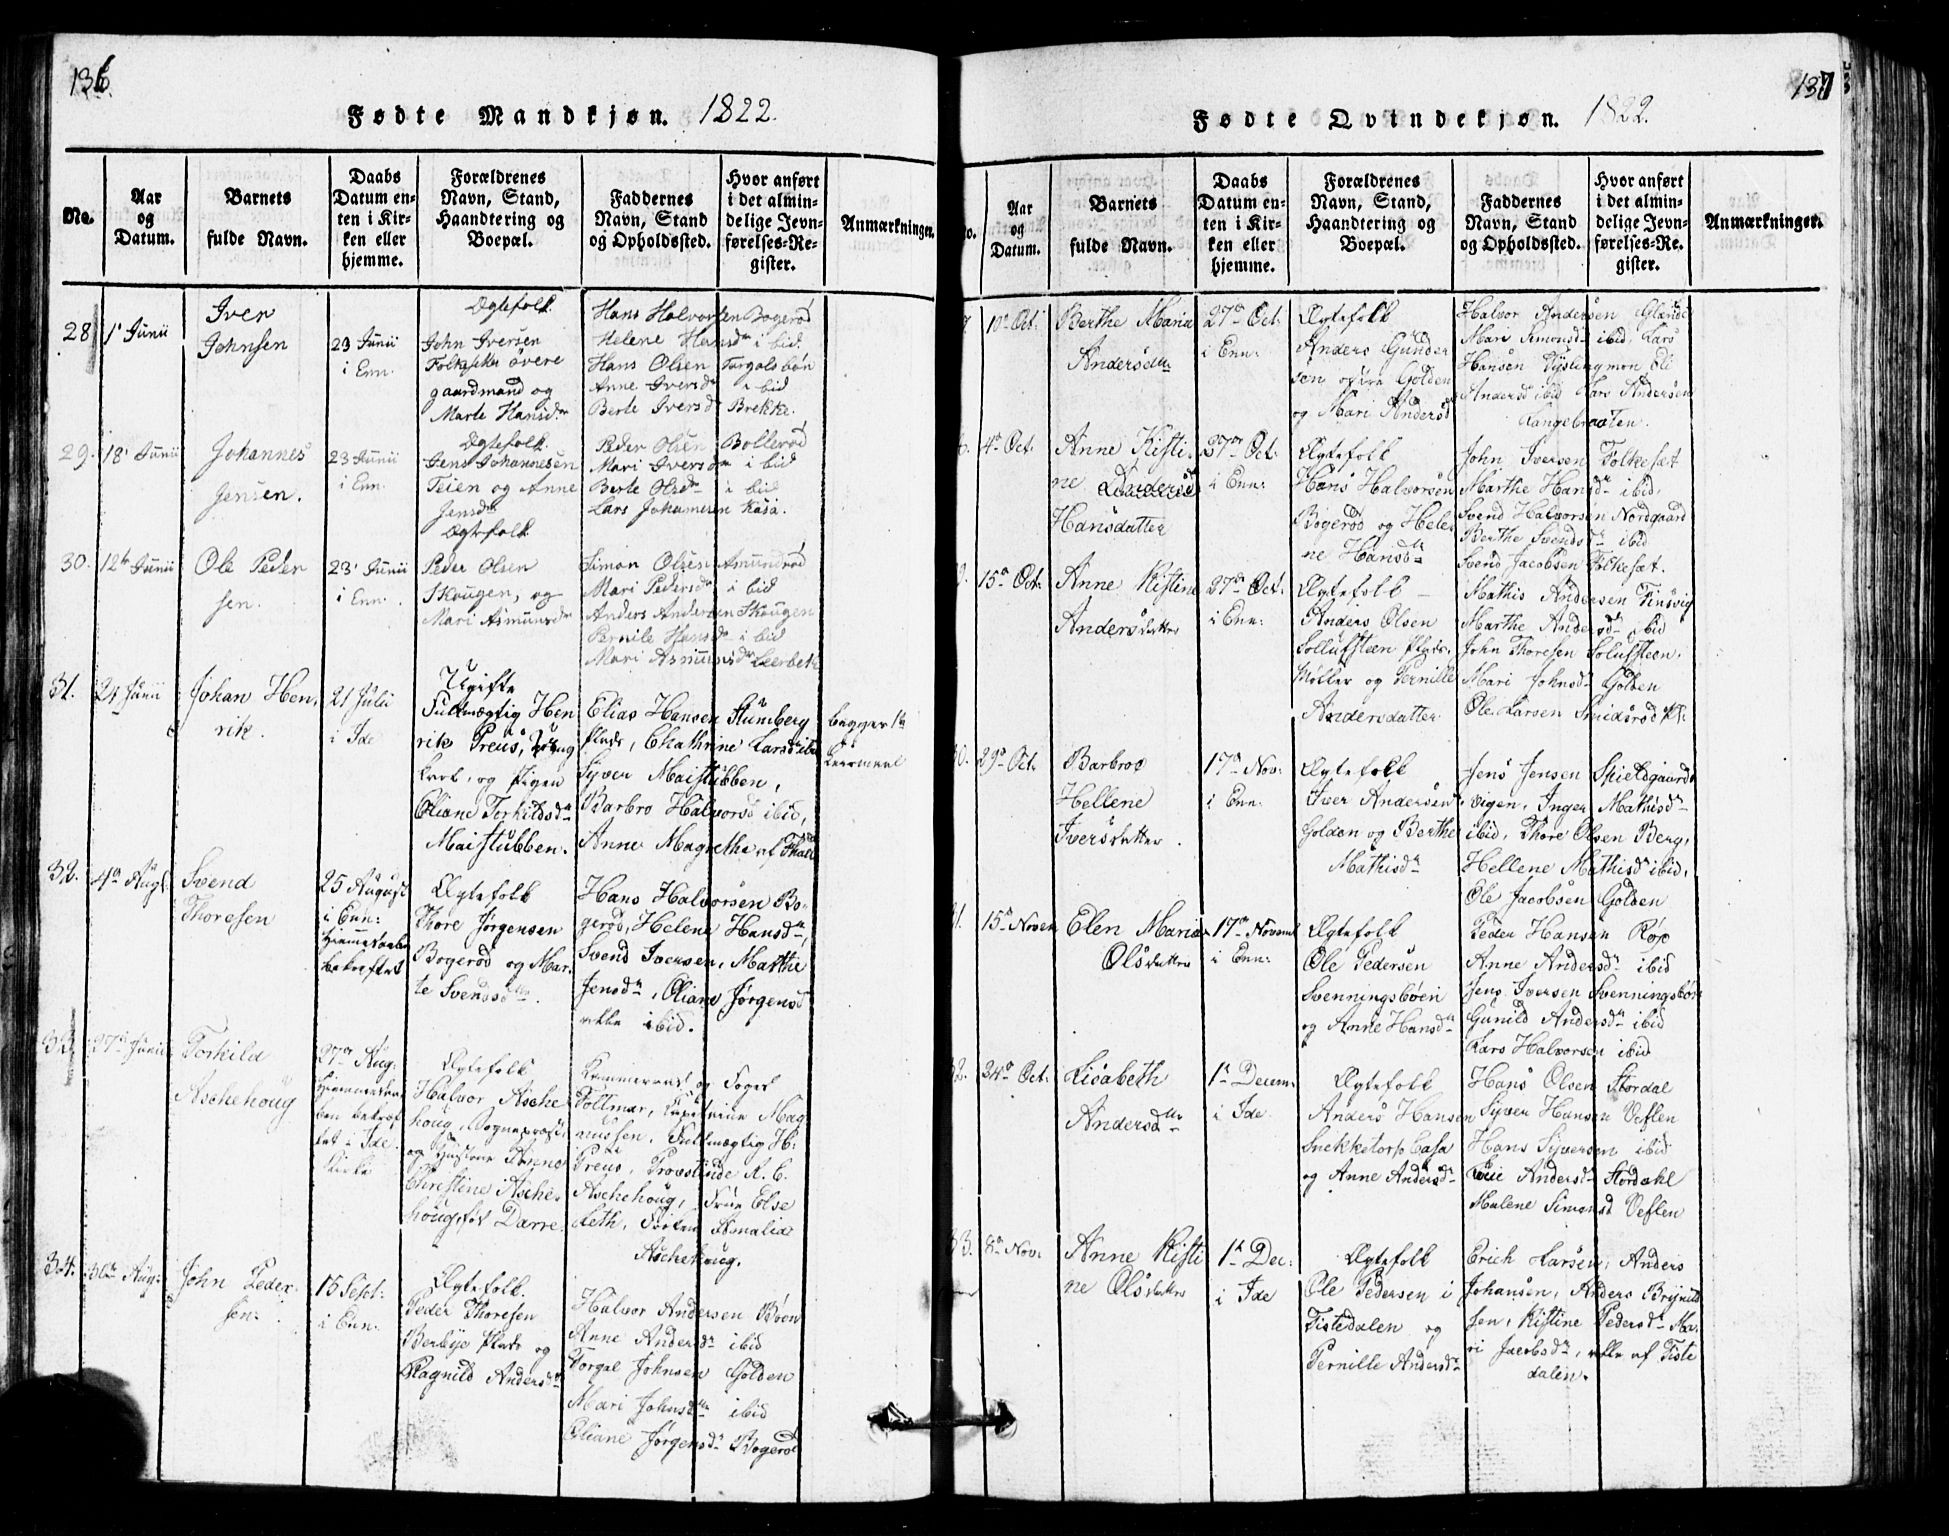 136
Fødte Mandkjøn. 1822.
No.
Aar
og
Datum.
Barnets
fulde Navn.
Daabs
Datum en-
ten i Kir-
ken eller
hjemme.
Forældrenes
Navn, Stand,
Haandtering og
Boepæl.
Faddernes
Navn, Stand
og Opholdssted.
Hvor anført
i det almin-
delige Jevn-
førelses-Re-
gister.
Anmærkninger.
28
1' Junii
Iver
Johnsen
23 Junii
i Enn.
Ægtefolk
John Iversen
Folkesetter øvere
gaardmand og
Marte Hansdr
Hans Halvorsen Bogerød
Helene Hansdr i bid
Hans Olsen Torgalsbøn
Anne Iversdr i bid
Berte Iversdr Brekke.
29.
18' Junii
Johannes
Jensen.
23 Junii
i Enn.
Ægtefolk
Jens Johannesen
Teien og Anne
Jensdr
Peder Olsen Bollerød
Mari Iversdr i bid
Berte Olsdr i bid
Lars Johannesen Kasa.
30.
12te Junii
Ole Peder
sen.
23' Junii
i Enn.
Ægtefolk
Peder Olsen
Skougen, og
Mari Asmunsdr
Simon Olsen Amundrød
Mari Pedersdr i bid
Anders Andersen Skougen
Pernile Hansdr i bid
Mari Asmunsdr Leerbek
31.
24 Junii
Johan Hen,
rik.
21 Julii
i Ide
Ugifte
Fultmægtig Hen
rik Preus,
og Pigen
Oliane Torkildsdr
Maistubben.
Elias Hansen Stumberg
Plads, Chathrine Larsdr ibid
Syver Maistubben,
Barbro Halvorsd ibid,
Anne Magrethe af
begges 1te
Leiermaal
32.
4de Augt.
Svend
Thoresen
25 August
i Enn:
Hiemmedaaben
bekræftet
Ægtefolk
Thore Jørgensen
Bogerød og Mar-
te Svendsdr.
Hans Halvorsen Bo-
gerød, Helene Hansdr,
Svend Iversen, Marthe
Jensdr, Oliane Jørgensd
alle ibid.
33
27de Junii
Torkild
Aschehoug
27de Aug.
Hiemmedaa-
ben bekræf-
tet i Ide
Kirke
Ægtefolk
Halvor Asche
houg, Sognepræst,
og Hustrue Anne
Christine Asche-
houg, fød Darre
Kammerraad og Foged
Foltmar, Mag
nussen, Fultmægtig H:
Preus, Provstinde A. C.
Aschehoug, Frue Else
Leth, Frøken Amalia
Aschehoug.
34.
30te Aug:
John Peder-
sen.
15 Sept:
i Enn.
Ægtefolk.
Peder Thoresen
Berbye Plads og
Ragnild Andersdr
Halvor Andersen Bøen
Anne Andersdr ibid
Torgal Johnsen Golden
Mari Johnsdr ibid
Oliane Jørgensdr Bogerød
137
Fødte Qvindekjøn. 1822.
No.
Aar
og
Datum.
Barnets
fulde Navn.
Daabs
Datum en-
ten i Kir-
ken eller
hjemme.
Forældrenes
Navn, Stand,
Haandtering og
Boepæl.
Faddernes
Navn, Stand
og Opholdssted.
Hvor anført
i det almin-
delige Jevn-
førelses-Re-
gister.
Anmærkninger.
10de Oct:
Berthe Maria
Andersdtr
27de Oct.
i Enn:
Ægtefolk
Anders Gunder
sen Golden
og Mari Andersd
Halvor Andersen
Mari Simonsd- ibid, Lars
Hansen
Andersd ibid Lars Andersen
Langebraaten.
4de Oct.
Anne Kisti-
ne Andersd
Hansdatter
27de Oct:
i Enn:
Ægtefolk
Hans Halvorsen
Bogerød og Hele-
ne Hansd-
John Iversen Folkesæt
Marthe Hansdr ibid,
Svend Halvorsen Nordgaard
Berthe Svendsdr ibid
Svend Jacobsen Folkesæt.
15de Oct.
Anne Kistine
Andersdatter
27de Oct:
i Enn:
Ægtefolk
Anders Olsen
Sollufsteen Plads,
Møller og Pernille
Andersdatter
Mathis Andersen Finsvig
Marthe Andersdr ibid
John Thoresen Solufsteen,
Mari Johnsd- Golden
Ole Larsen Smidsrød Pl:
29de Oct.
Barbroe
Hellene
Iversdatter.
17de Nov:
i Enn:
Ægtefolk
Iver Andersen
Golden og Berthe
Mathisdr
Jens Jensen Skieldgaards
vigen, Inger Mathisdr
ibid, Thore Olsen Berg,
Hellene Mathisdr ibid,
Ole Jacobsen Golden
15de Novem
Elen Maria
Olsdatter
17de Novemb
i Enn:
Ægtefolk
Ole Pedersen
Svenningsbøen
og Anne Hansdr
Peder Hansen Røsp
Anne Andersdr ibid
Jens Iversen Svenningsbøen
Gunild Andersdr ibid
Lars Halvorsen ibid
24de Oct:
Lisabeth
Andersdtr
1te Decem:
i Ide
Ægtefolk
Anders Hansen
Snekketorp Casa
og Anne Andersdr
Hans Olsen Stordal
Syver Hansen Veflen
Hans Syversen ibid
Andersdr Stordahl
Malene Simonsd Veflen
8de Nov:
Anne Kisti
ne Olsdatter
1te Dec:
i Ide
Ægtefolk
Ole Pedersen i
Tistedalen og
Pernille Andersdr
Erich Larsen, Anders
Johansen, Anders Brynild
sen, Kistine Pedersdr Ma-
ri Jacobsdr, alle af Tiste
dalen.